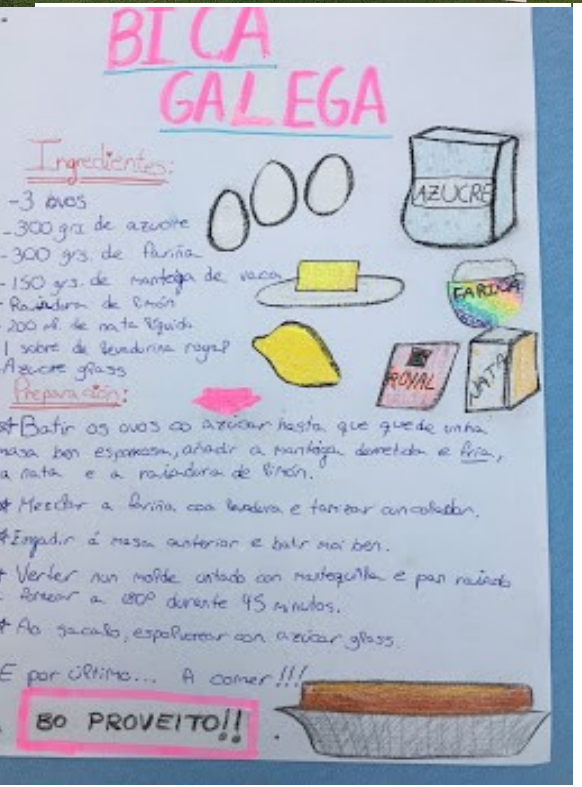 BICA
GALEGA
Ingredientes:
-3 ovos
-300 grs de azucre
-300 grs. de fariña
-150 grs. de manteiga de vaca
- Raiadura de limón
-200 ml de nata líquida
1 sobre de levadurina royal
-Azucre glass
AZUCRE
FARIÑA
ROYAL
NATA
Preparación:
* Batir os ovos co azúcar hasta que quede unha
masa ben espomosa, añadir a manteiga derretida e fría,
a nata e a raiadura de limón.
* Mezclar a fariña coa levadura e tamizar cun colador.
* Engadir á masa anterior e batir moi ben.
* Verter nun molde untado con mantequilla e pan raiado
fornear a 180º durante 45 minutos.
* Ao sacalo, espolvorear con azúcar glass.
E por último... A comer!!!
BO PROVEITO!!